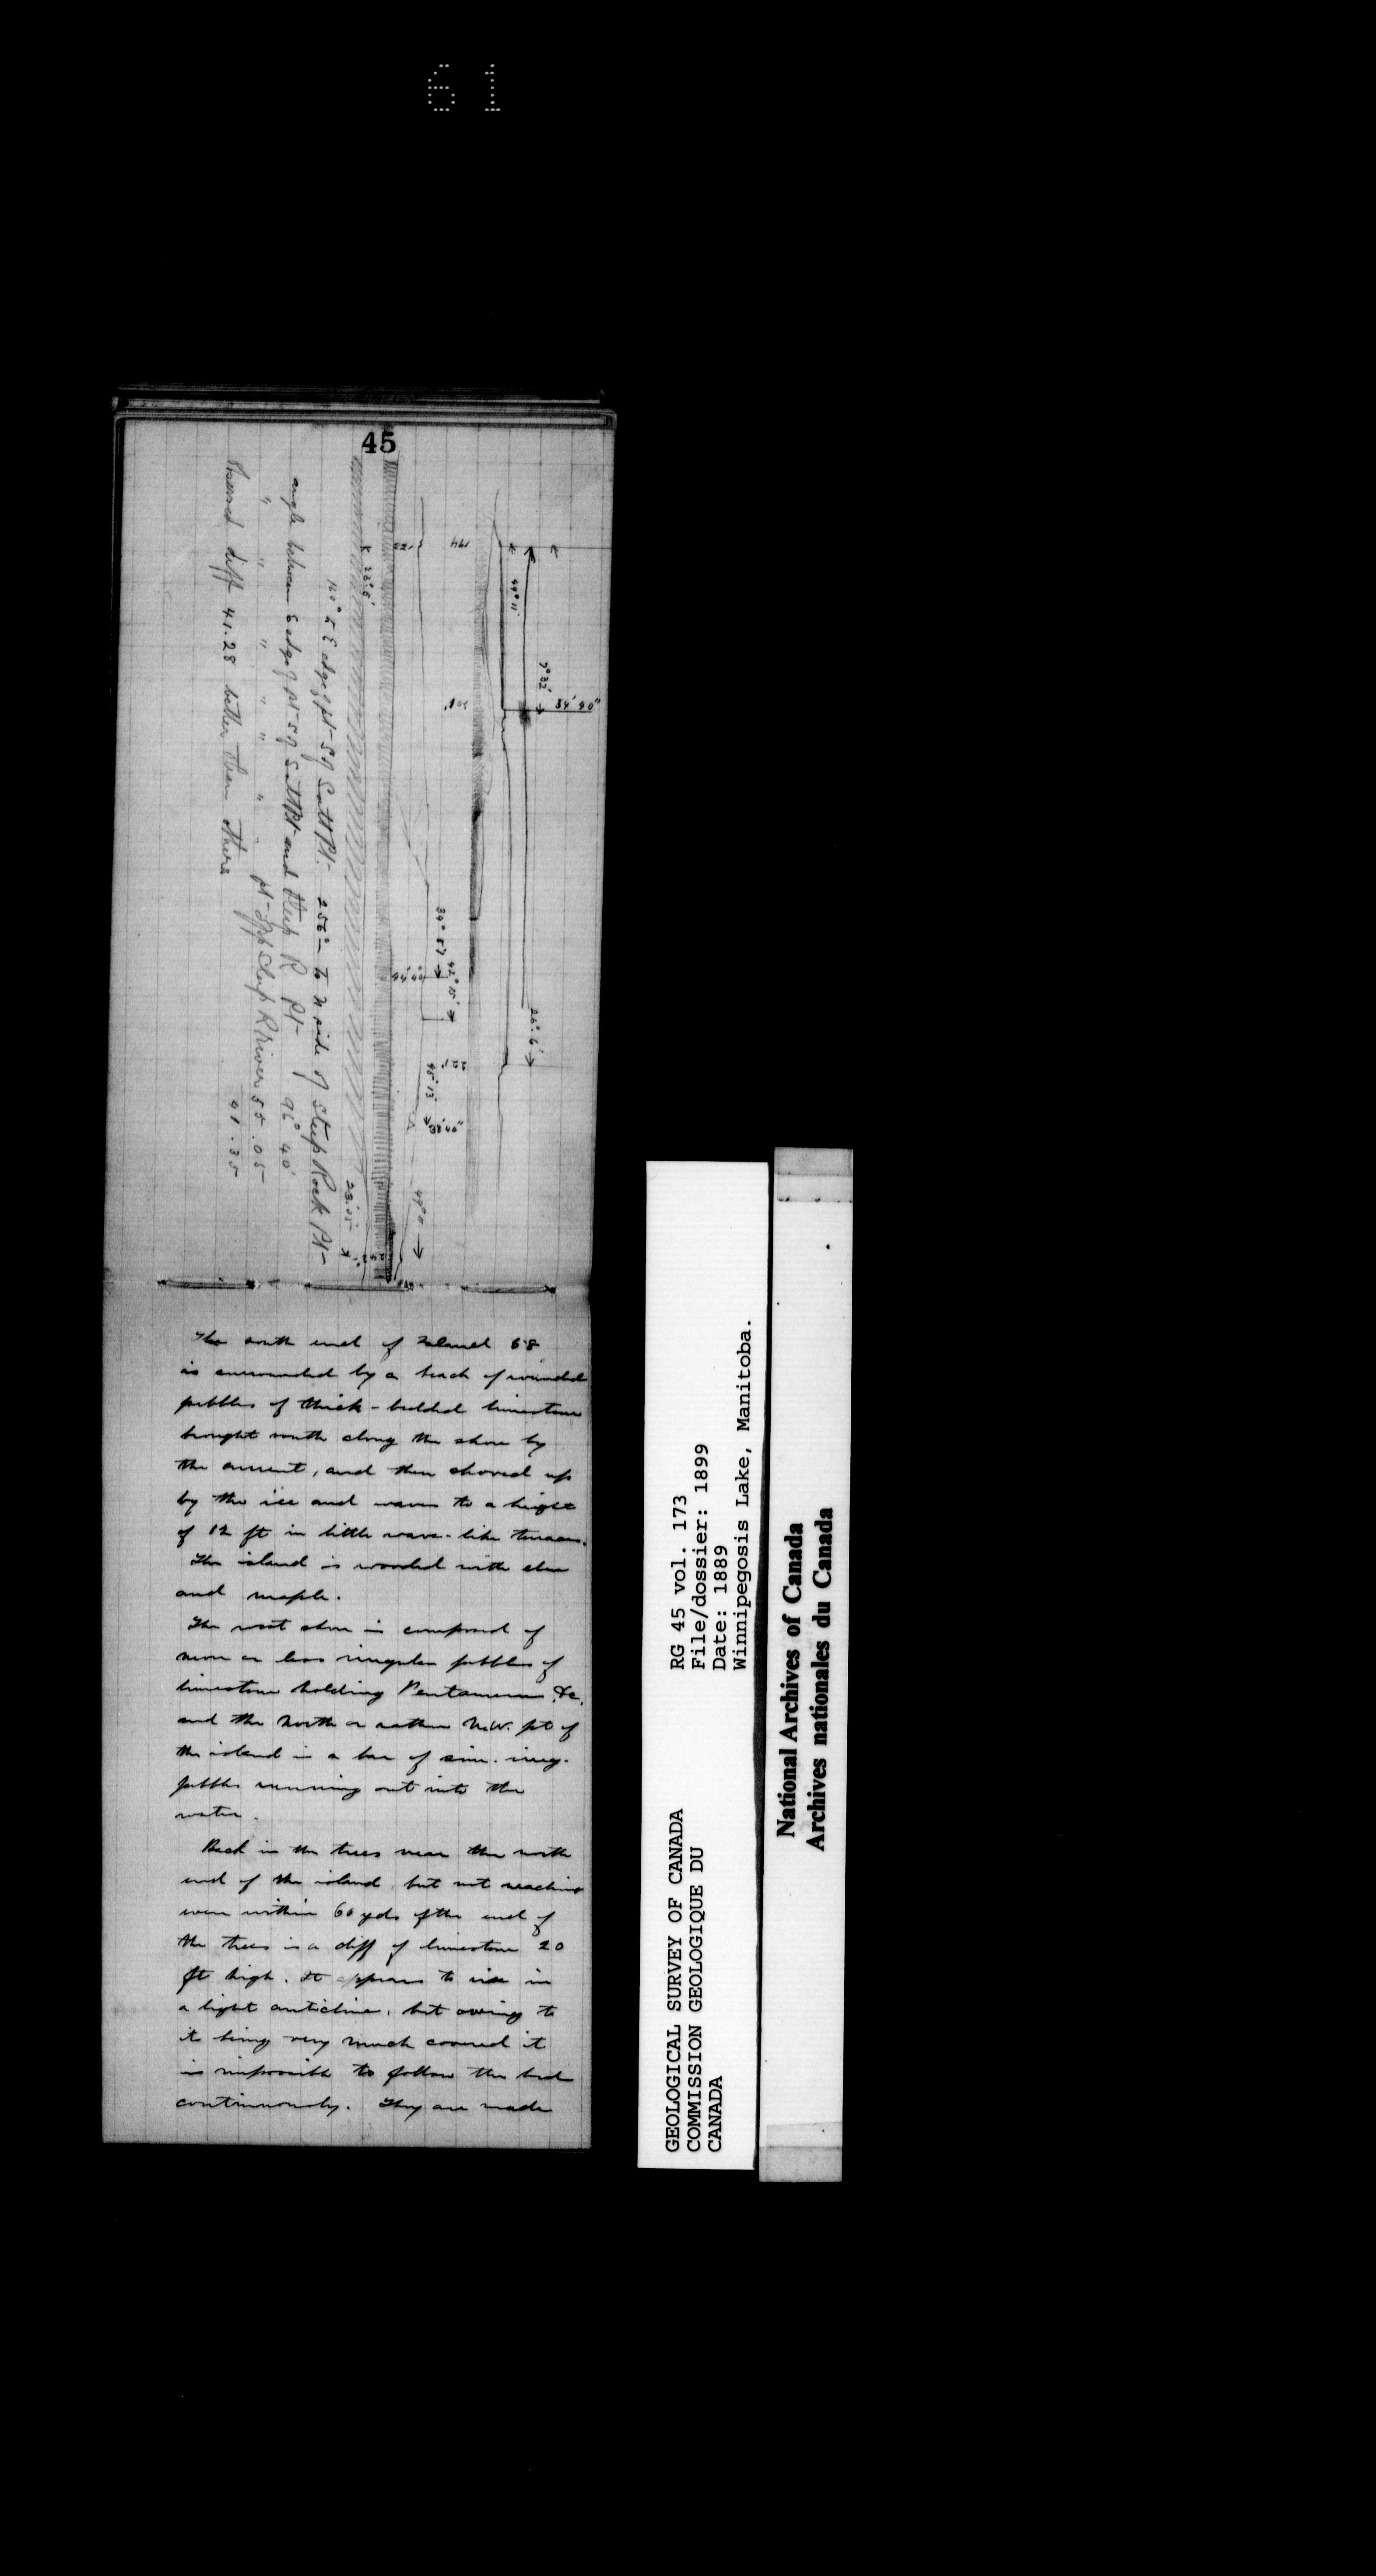 61
45
160° to E edge of pt S of Salt Pt. 256° to N side of Steep Rock Pt
angle between E edge of pt S of Salt Pt and Steep R Pt 96° 40'
" " " " " " pt opp Steep R River 55.05
41.35
diff 41.28 better than there
44° 11'
7° 32'
34' 40"
26° 6'
34° 57
42° 15'
45° 13'
49° 0
23.05
The south end of Island 68
is surrounded by a beach of rounded
pebbles of thick-bedded limestone
brought south along the shore by
the current, and then shoved up
by the ice and waves to a height
of 12 ft in little wave-like terraces.
The island is wooded with elm
and maple.
The west shore is composed of
more or less irregular pebbles of
limestone holding Pentamerus &c.
and the north or rather N.W. pt of
the island is a bar of sim. irreg.
pebbles running out into the
water.
Back in the trees near the north
end of the island, but not reaching
even within 60 yds of the end of
the trees is a cliff of limestone 20
ft high. It appears to rise in
a light anticline, but owing to
it being very much covered it
is impossible to follow the bed
continuously. They are made
GEOLOGICAL SURVEY OF CANADA
COMMISSION GEOLOGIQUE DU
CANADA
RG 45 vol. 173
File/dossier: 1899
Date: 1889
Winnipegosis Lake, Manitoba.
National Archives of Canada
Archives nationales du Canada